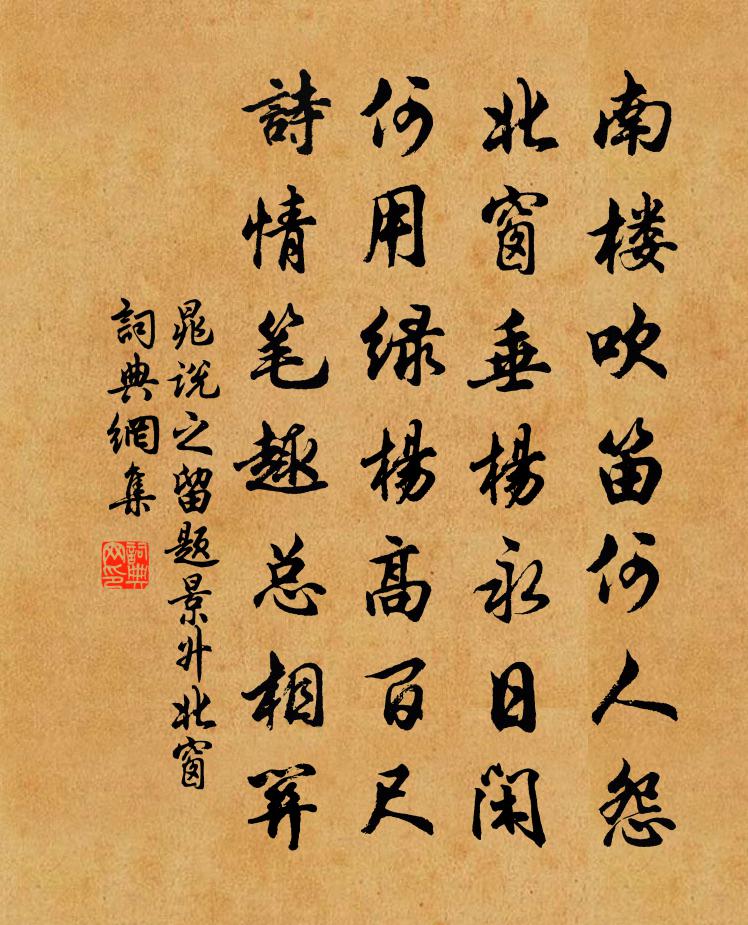 南楼吹笛何人怨
北窗垂楊永日闲
何用绿楊高百尺
詩情笔趣总相关
晁说之留题景升北窗
詞典網集
詞典网印